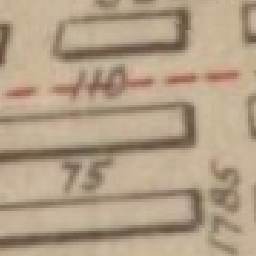 110
75
1785